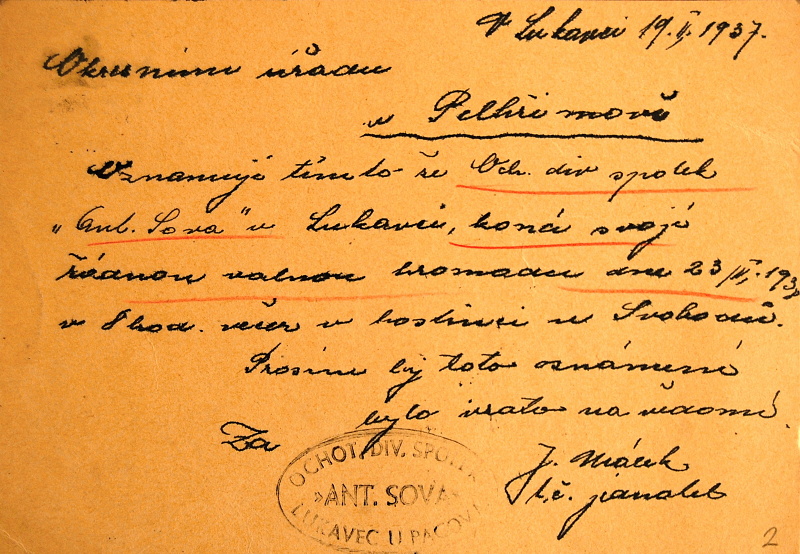 V Lukavci 19.II.1937.
Okresnímu úřadu
v Pelhřimově
Oznamuji tímto že Och. div spolek
"Ant. Sova" v Lukavci, koná svojí
řádnou valnou hromadu dne 23/II. 193
v 8 hod. večer v hostinci u Svobodů.
Prosíme by toto oznámení
bylo vzato na vědomí.
Za
OCHOT. DIV. SPOLEK
»ANT. SOVA«
LUKAVEC U PACOVA
J. Macek
t.č. jednatel
2